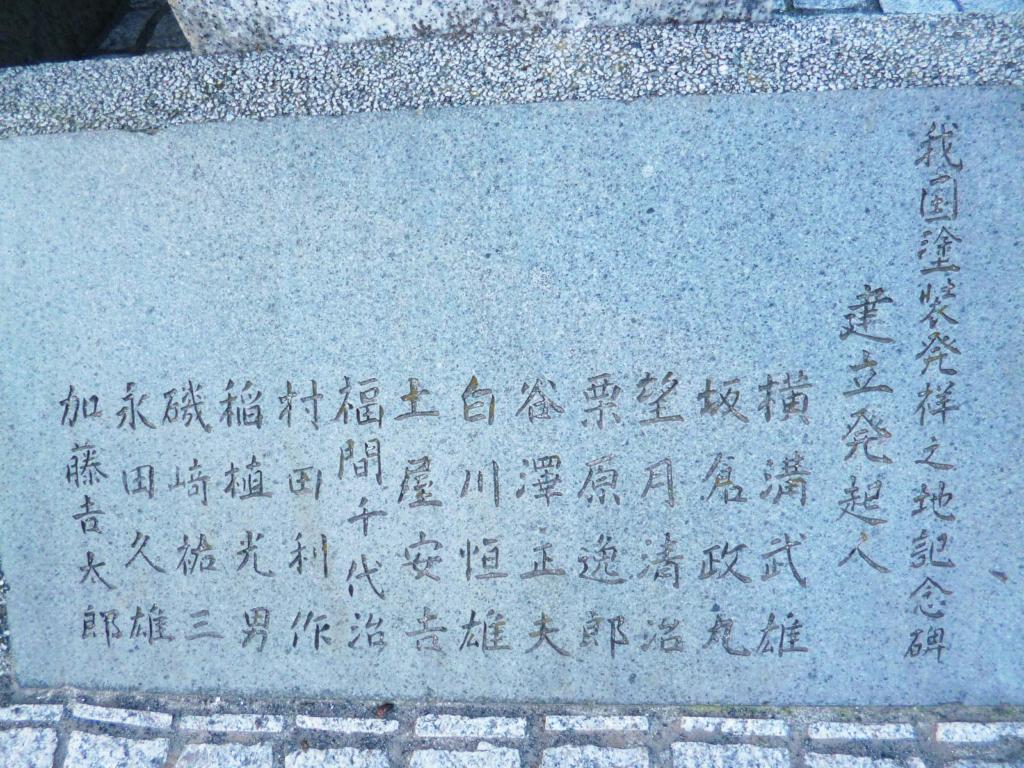 我国塗装発祥之地記念碑
建立発起人
横溝武雄
坂倉政丸
望月清治
栗原逸郎
谷澤正夫
白川恒雄
土屋安吉
福間千代治
村田利作
稲植光男
磯﨑祐三
永田久雄
加藤吉太郎